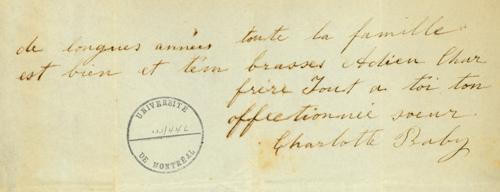 de longues années toute la famille
est bien et t'em brasses Adieu Cher
frère Tout a toi ton
affectionnée soeur
Charlotte Baby
UNIVERSITÉ
DE MONTRÉAL